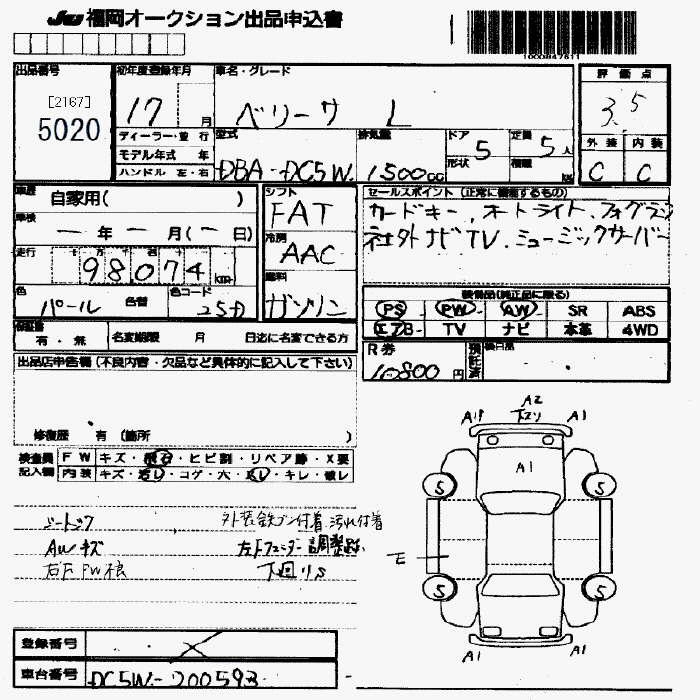 JU 福岡オークション出品申込書
1000847611
出品番号
[2167]
5020
初年度登録年月
17 月
車名・グレード
ベリーサ L
評価点
3.5
ディーラー・並行
モデル年式 年
ハンドル 左・右
型式
DBA-DC5W
排気量
1500cc
ドア
形状
5
定員
5人
積載
kg
外装 内装
C C
車歴
自家用( )
車検
一年一月(一日)
走行
98074 km
色
パール
色替
色コード
25D
シフト
FAT
冷房
AAC
燃料
ガソリン
セールスポイント (正常に機能するもの)
カードキー、オートライト、フォグランプ
社外ナビ、TV、ミュージックサーバー
装備品(純正品に限る)
PS PW AW SR ABS
エアB TV ナビ 本革 4WD
保証書
有・無
名変期限 月 日迄に名変できる方
R券
10800円
預託済
欠品
出品店申告欄(不良内容・欠品など具体的に記入して下さい)
修復歴 有 (箇所 )
検査員
記入欄
FW キズ・飛石・ヒビ割・リペア跡・X要
内装 キズ・汚レ・コゲ・穴・スレ・キレ・破レ
シートスク 外装鉄フン付着 汚れ付着
AWキズ 左Fフェンダー調整跡
右F FW痕 下回りS
A2
A1P 下スリ A1
A1
S S
E
S S
A1 A1
登録番号
車台番号 DC5W-200593